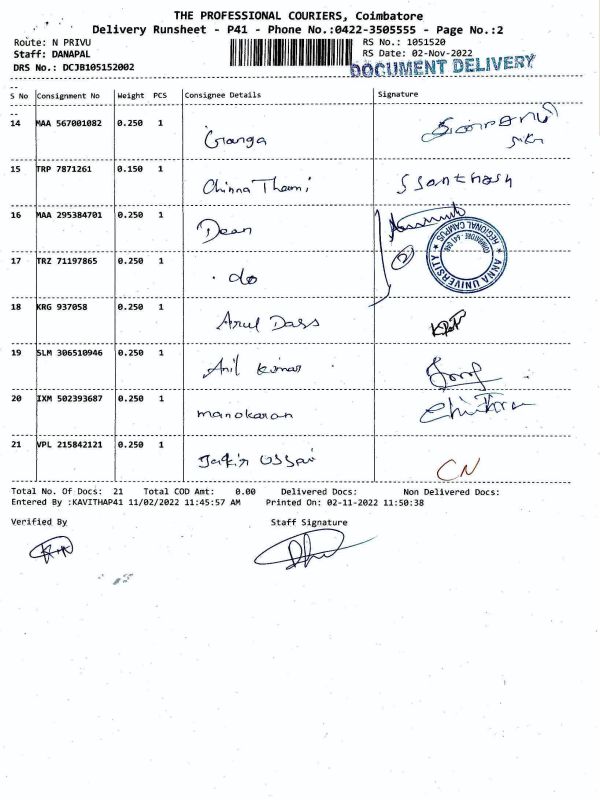 THE PROFESSIONAL COURIERS, Coimbatore
Delivery Runsheet - P41 - Phone No.:0422-3505555 - Page No.:2
Route: N PRIVU
RS No.: 1051520
Staff: DANAPAL
RS Date: 02-Nov-2022
DRS No.: DCJB105152002
DOCUMENT DELIVERY
S No Consignment No Weight PCS Consignee Details Signature
14 MAA 567001082 0.250 1 Ganga
15 TRP 7871261 0.150 1 Chinna Thami SSanthosh
16 MAA 295384701 0.250 1 Dean
17 TRZ 71197865 0.250 1 do 2
ANNA UNIVERSITY
REGIONAL CAMPUS
18 KRG 937058 0.250 1 Arul Dass
19 SLM 306510946 0.250 1 Anil Kumar
20 IXM 502393687 0.250 1 manokaran Chithra
21 VPL 215842121 0.250 1 CN
Total No. Of Docs: 21 Total COD Amt: 0.00 Delivered Docs: Non Delivered Docs:
Entered By :KAVITHAP41 11/02/2022 11:45:57 AM Printed On: 02-11-2022 11:50:38
Verified By Staff Signature